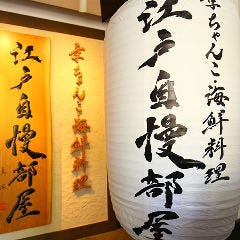 江戸自慢部屋
京ちゃんこ・海鮮料理
京ちゃんこ・海鮮料理
江戸自慢部屋